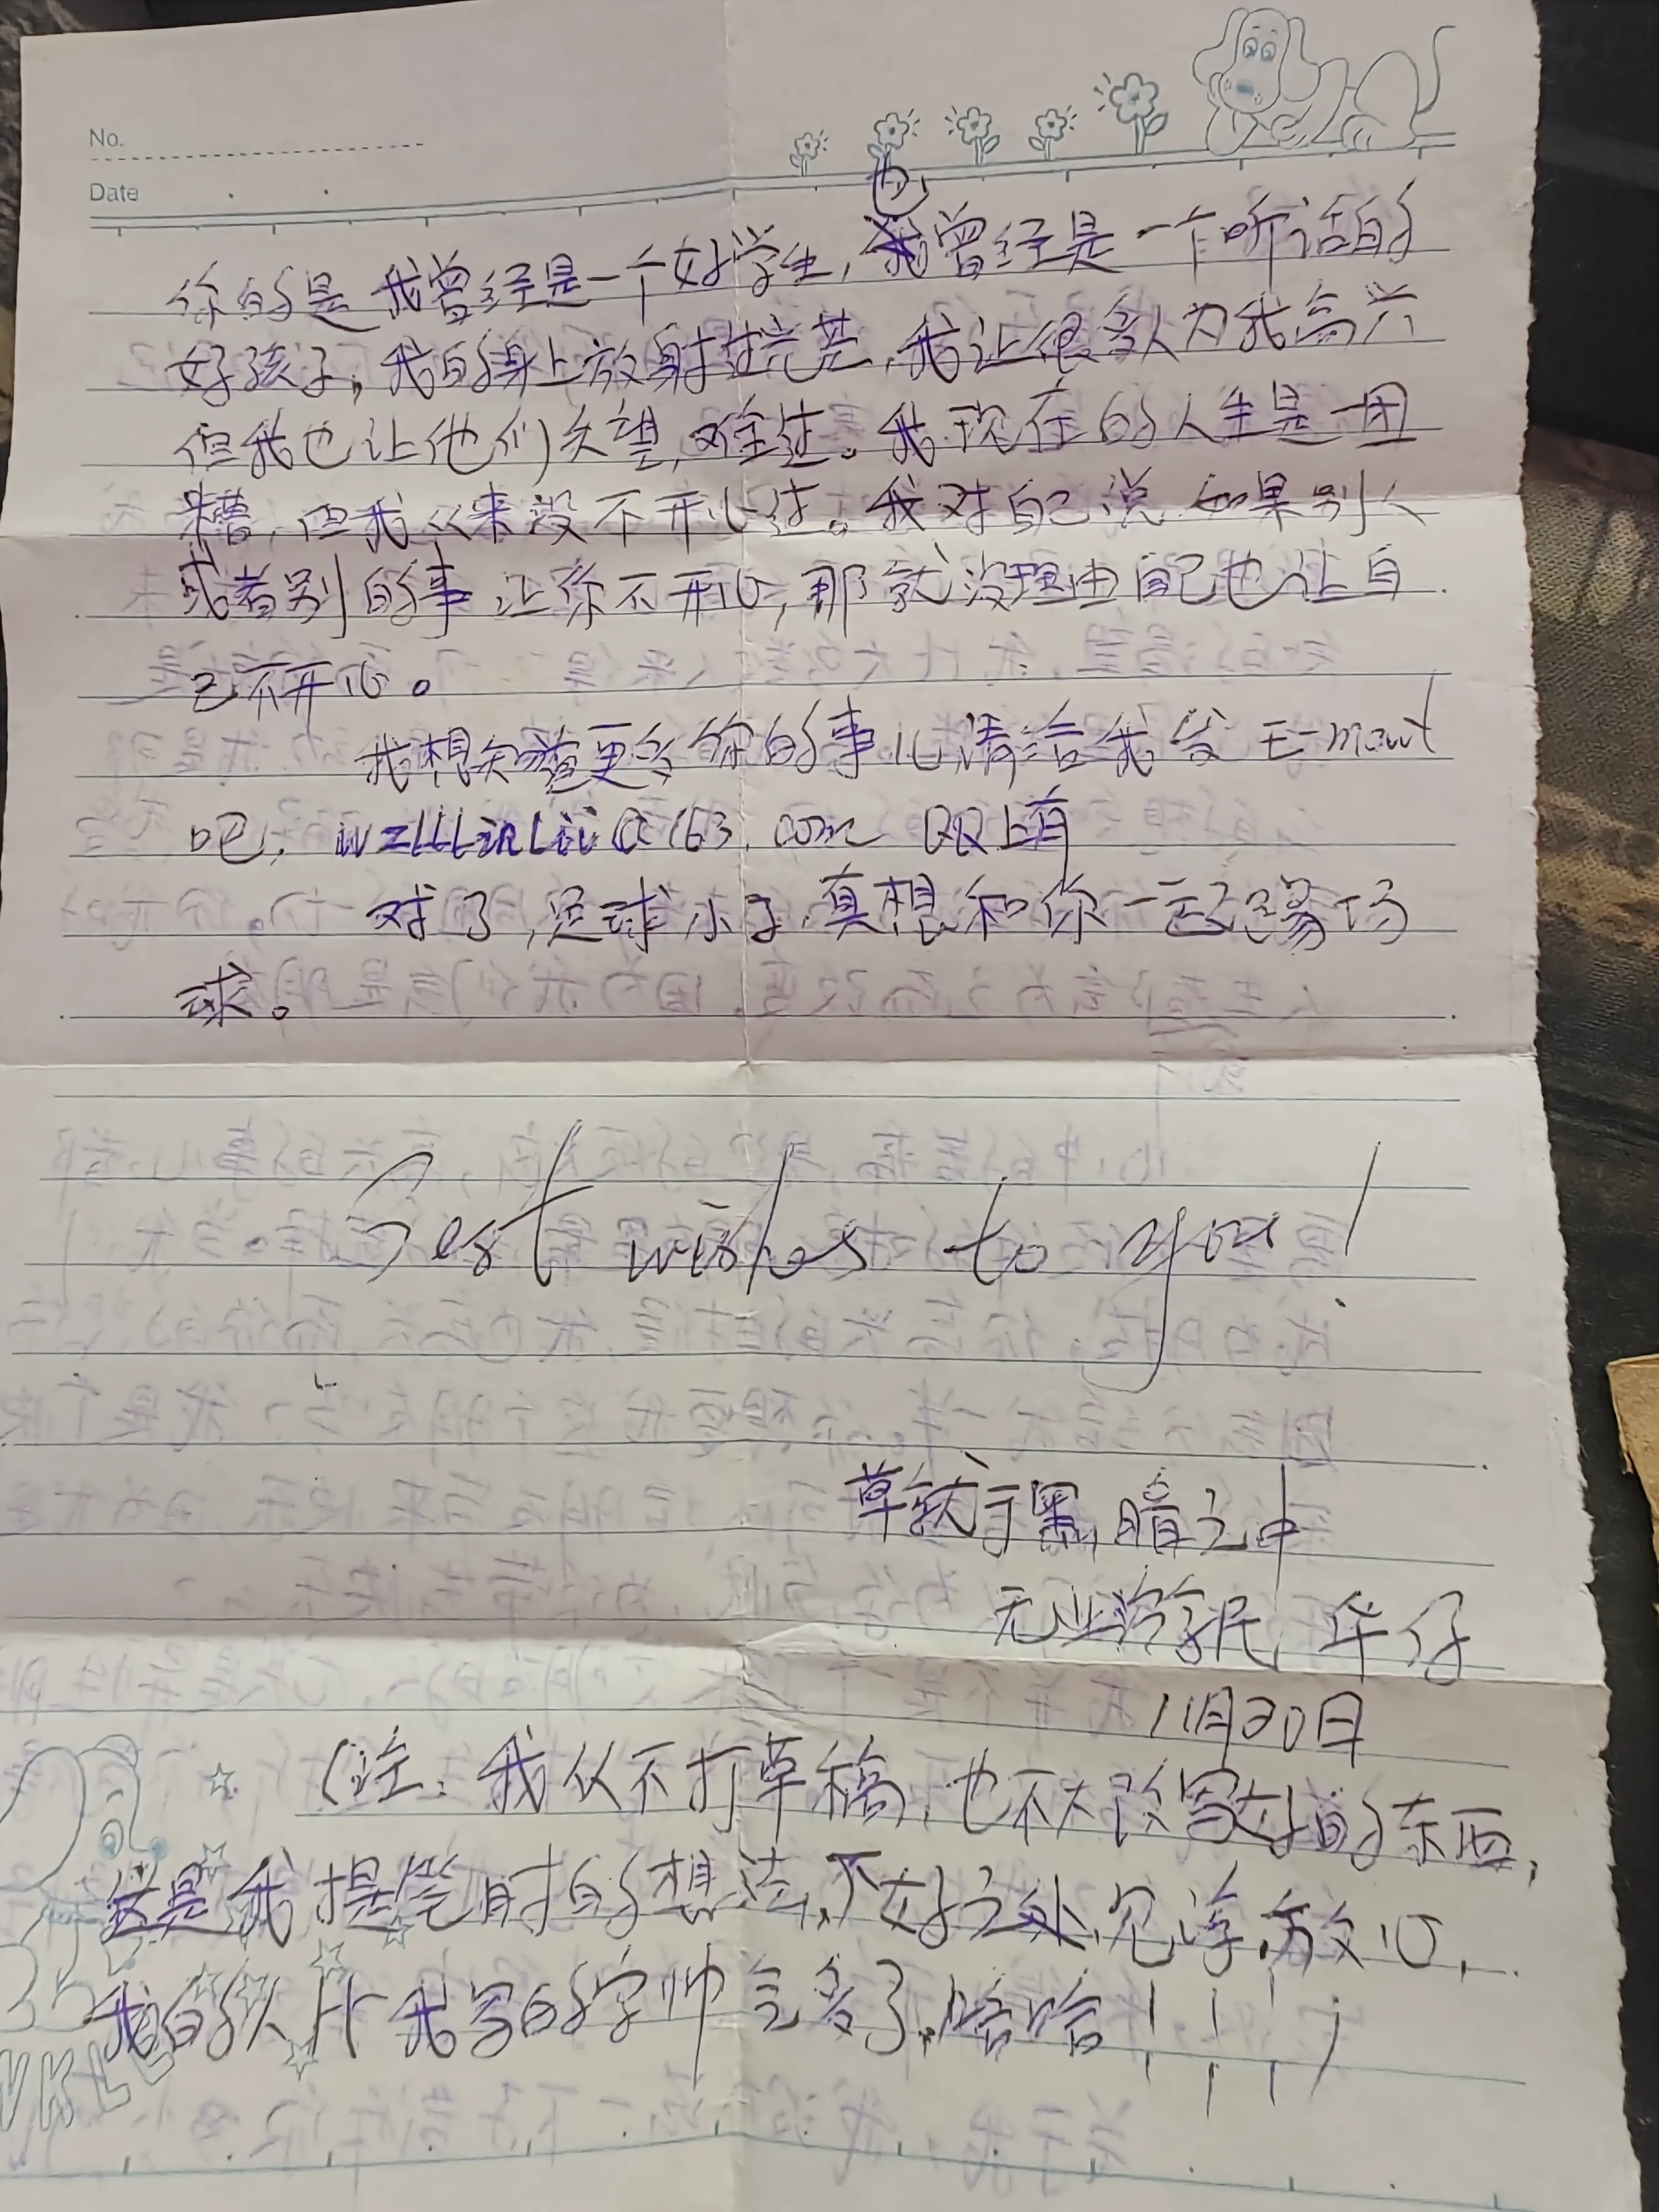 No.
Date
你的是我曾经是一个好学生，也曾经是一个听话的
好孩子，我的身上放射过光芒，我让很多人为我高兴
但我也让他们失望，难过。我现在的人生是一团
糟，但我从来没不开心过。我对自己说 如果别人
或者别的事让你不开心，那就没理由自己也让自
己不开心。
我想知道更多你的事儿，请给我发 E-mail
吧， @163.com QQ上有
对了，足球小子，真想和你一起踢场
球。
Best wishes to you!
草就于黑暗之中
无业游民 华仔
11月30日
（注：我从不打草稿，也不大改写好的东西，
这是我提笔时的想法，不好之处，见谅，放心，
我的人比我写的字帅气多了，哈哈！！！）